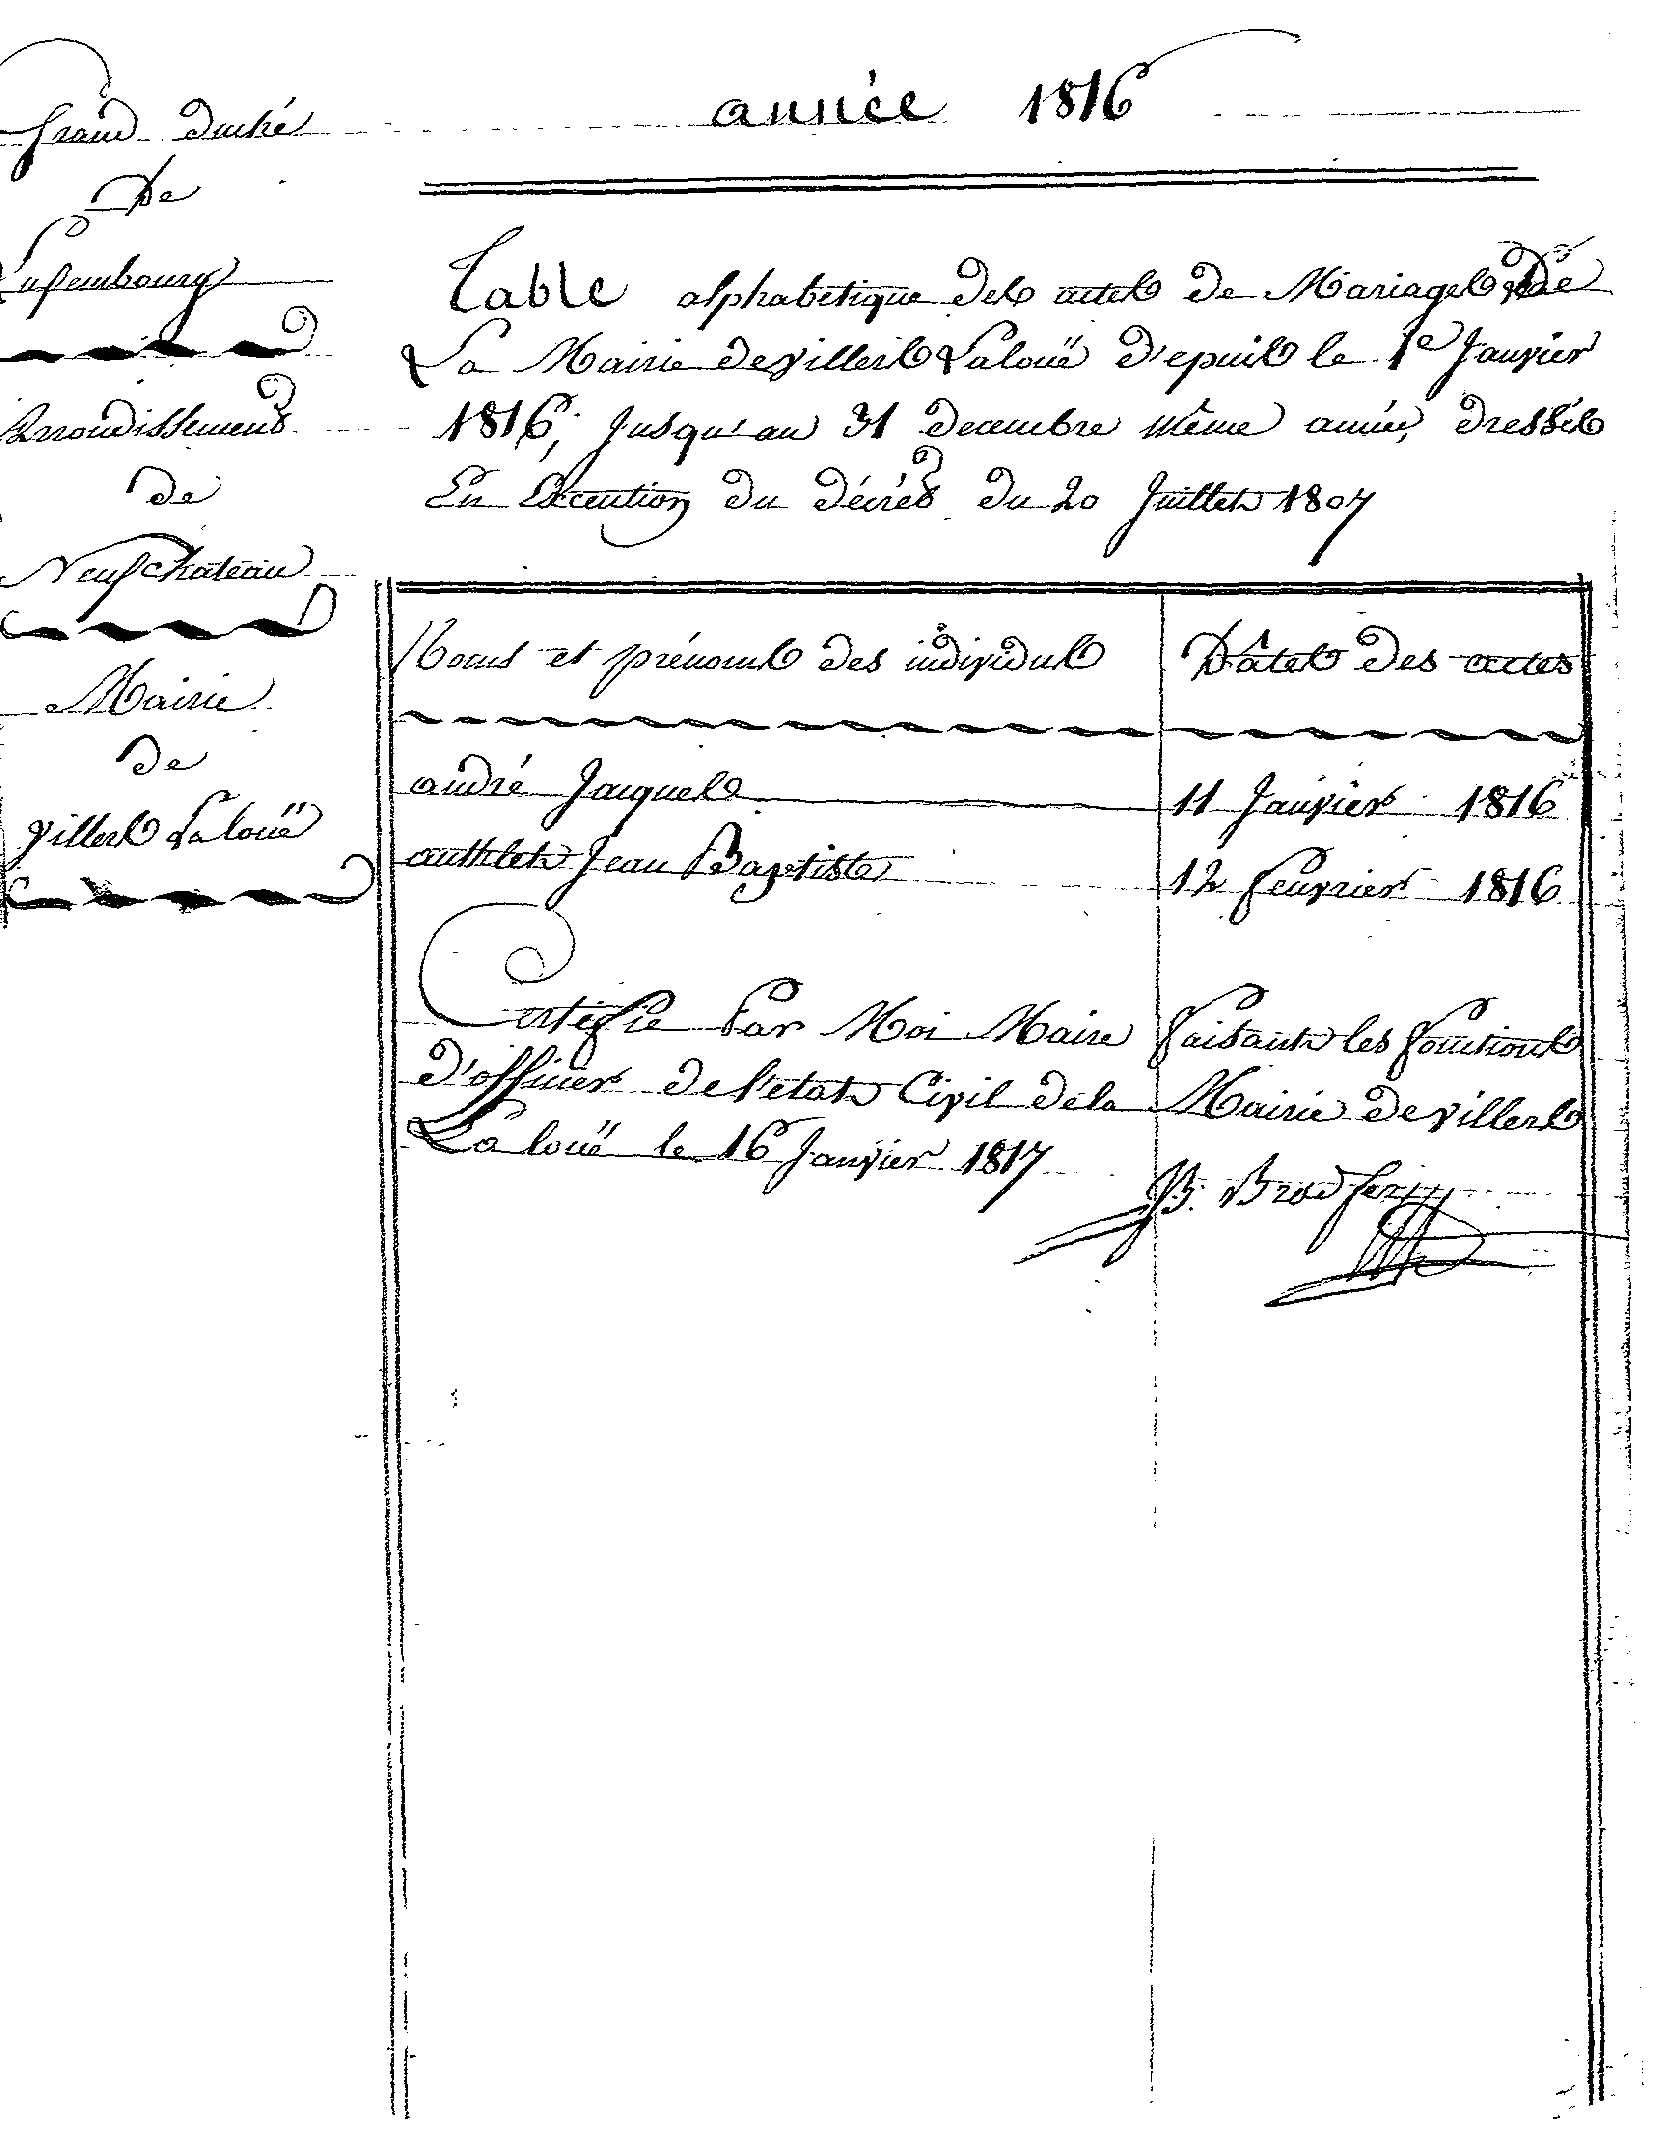 année 1816
Grand duché
De
Luxembourg
Arrondissement
de
Neufchateau
Mairie
de
villers Laloüe
Table alphabetique des actes de Mariages De
La Mairie de villers Laloüe d'epuis le 1e Janvier
1816, Jusqu'au 31 decembre même année, dressés
En Execution du décret du 20 Juillet 1807
Noms et prénoms des individus
Dâtes des actes
andré Jacques
11 Janvier 1816
authlet Jean Baptiste
12 fevrier 1816
Certifie Par Moi Maire faisant les fonctions
d'officier de l'etat Civil de la Mairie de villers
La loüe le 16 Janvier 1817